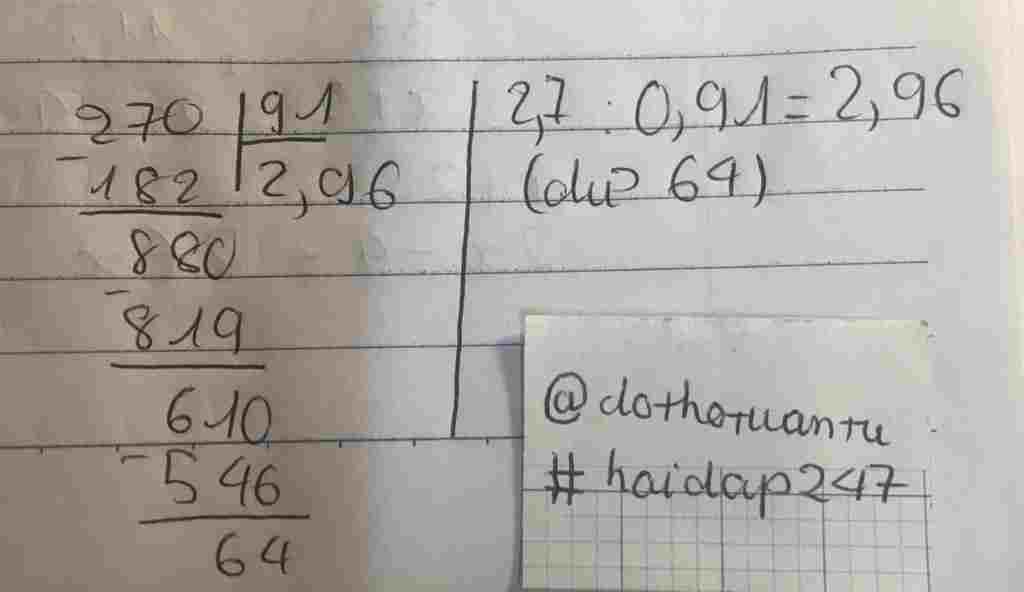 270 | 91
- 182 | 2,96
880
- 819
610
- 546
64
2,7 : 0,91 = 2,96
(dư 64)
@dothotuantu
#hoidap247